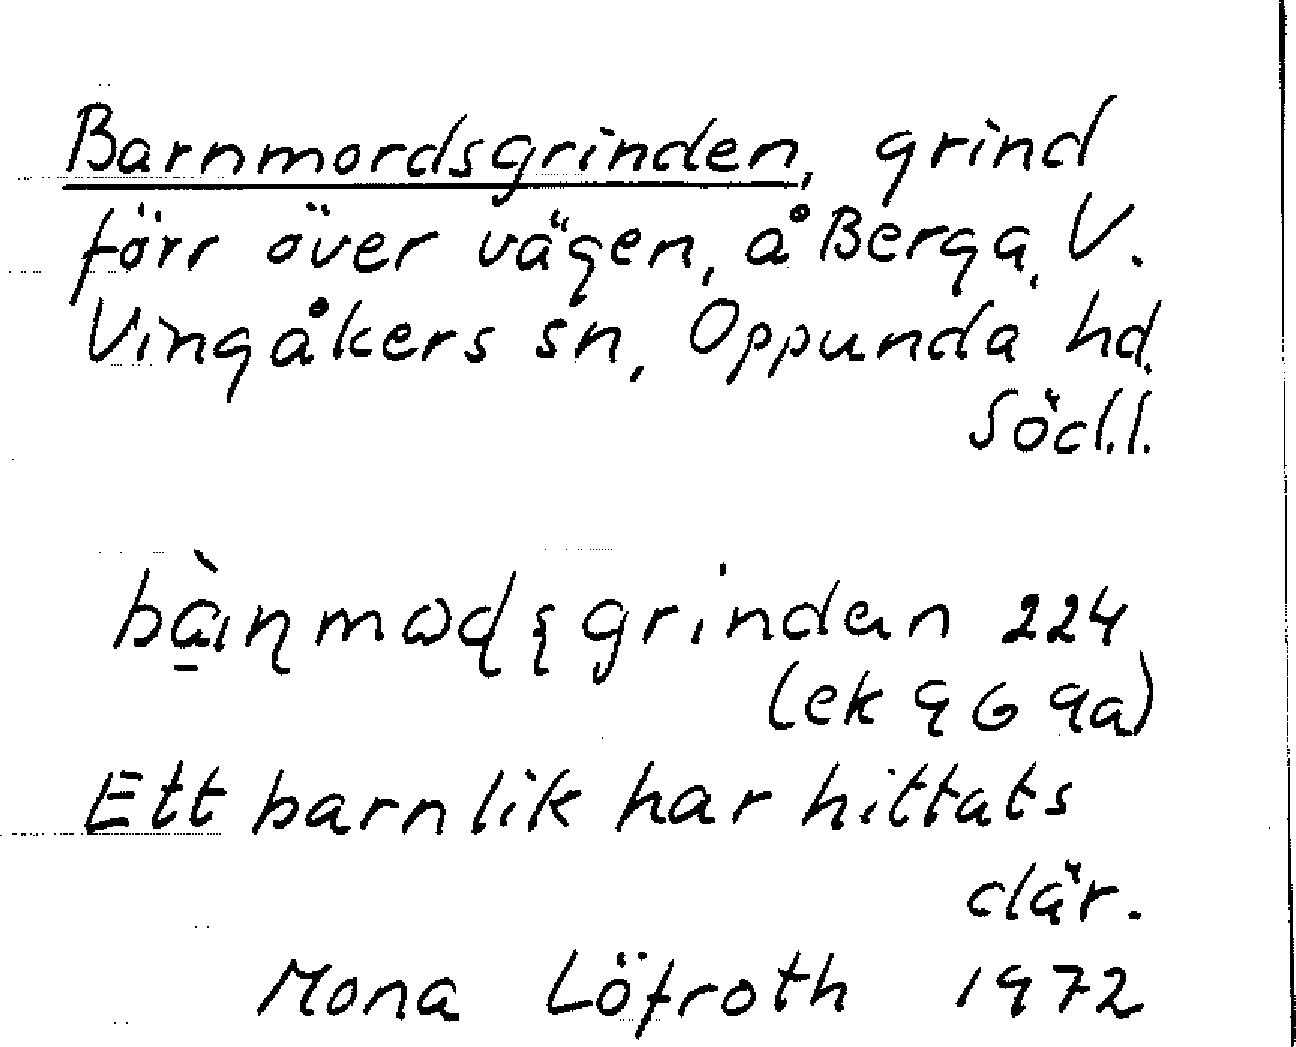 Barnmordsgrinden, grind
förr över vägen, å Berga, V.
Vingåkers sn, Oppunda hd.
Södl.l.
224
(ek 9G 9a)
Ett barnlik har hittats
där.
Mona Löfroth 1972